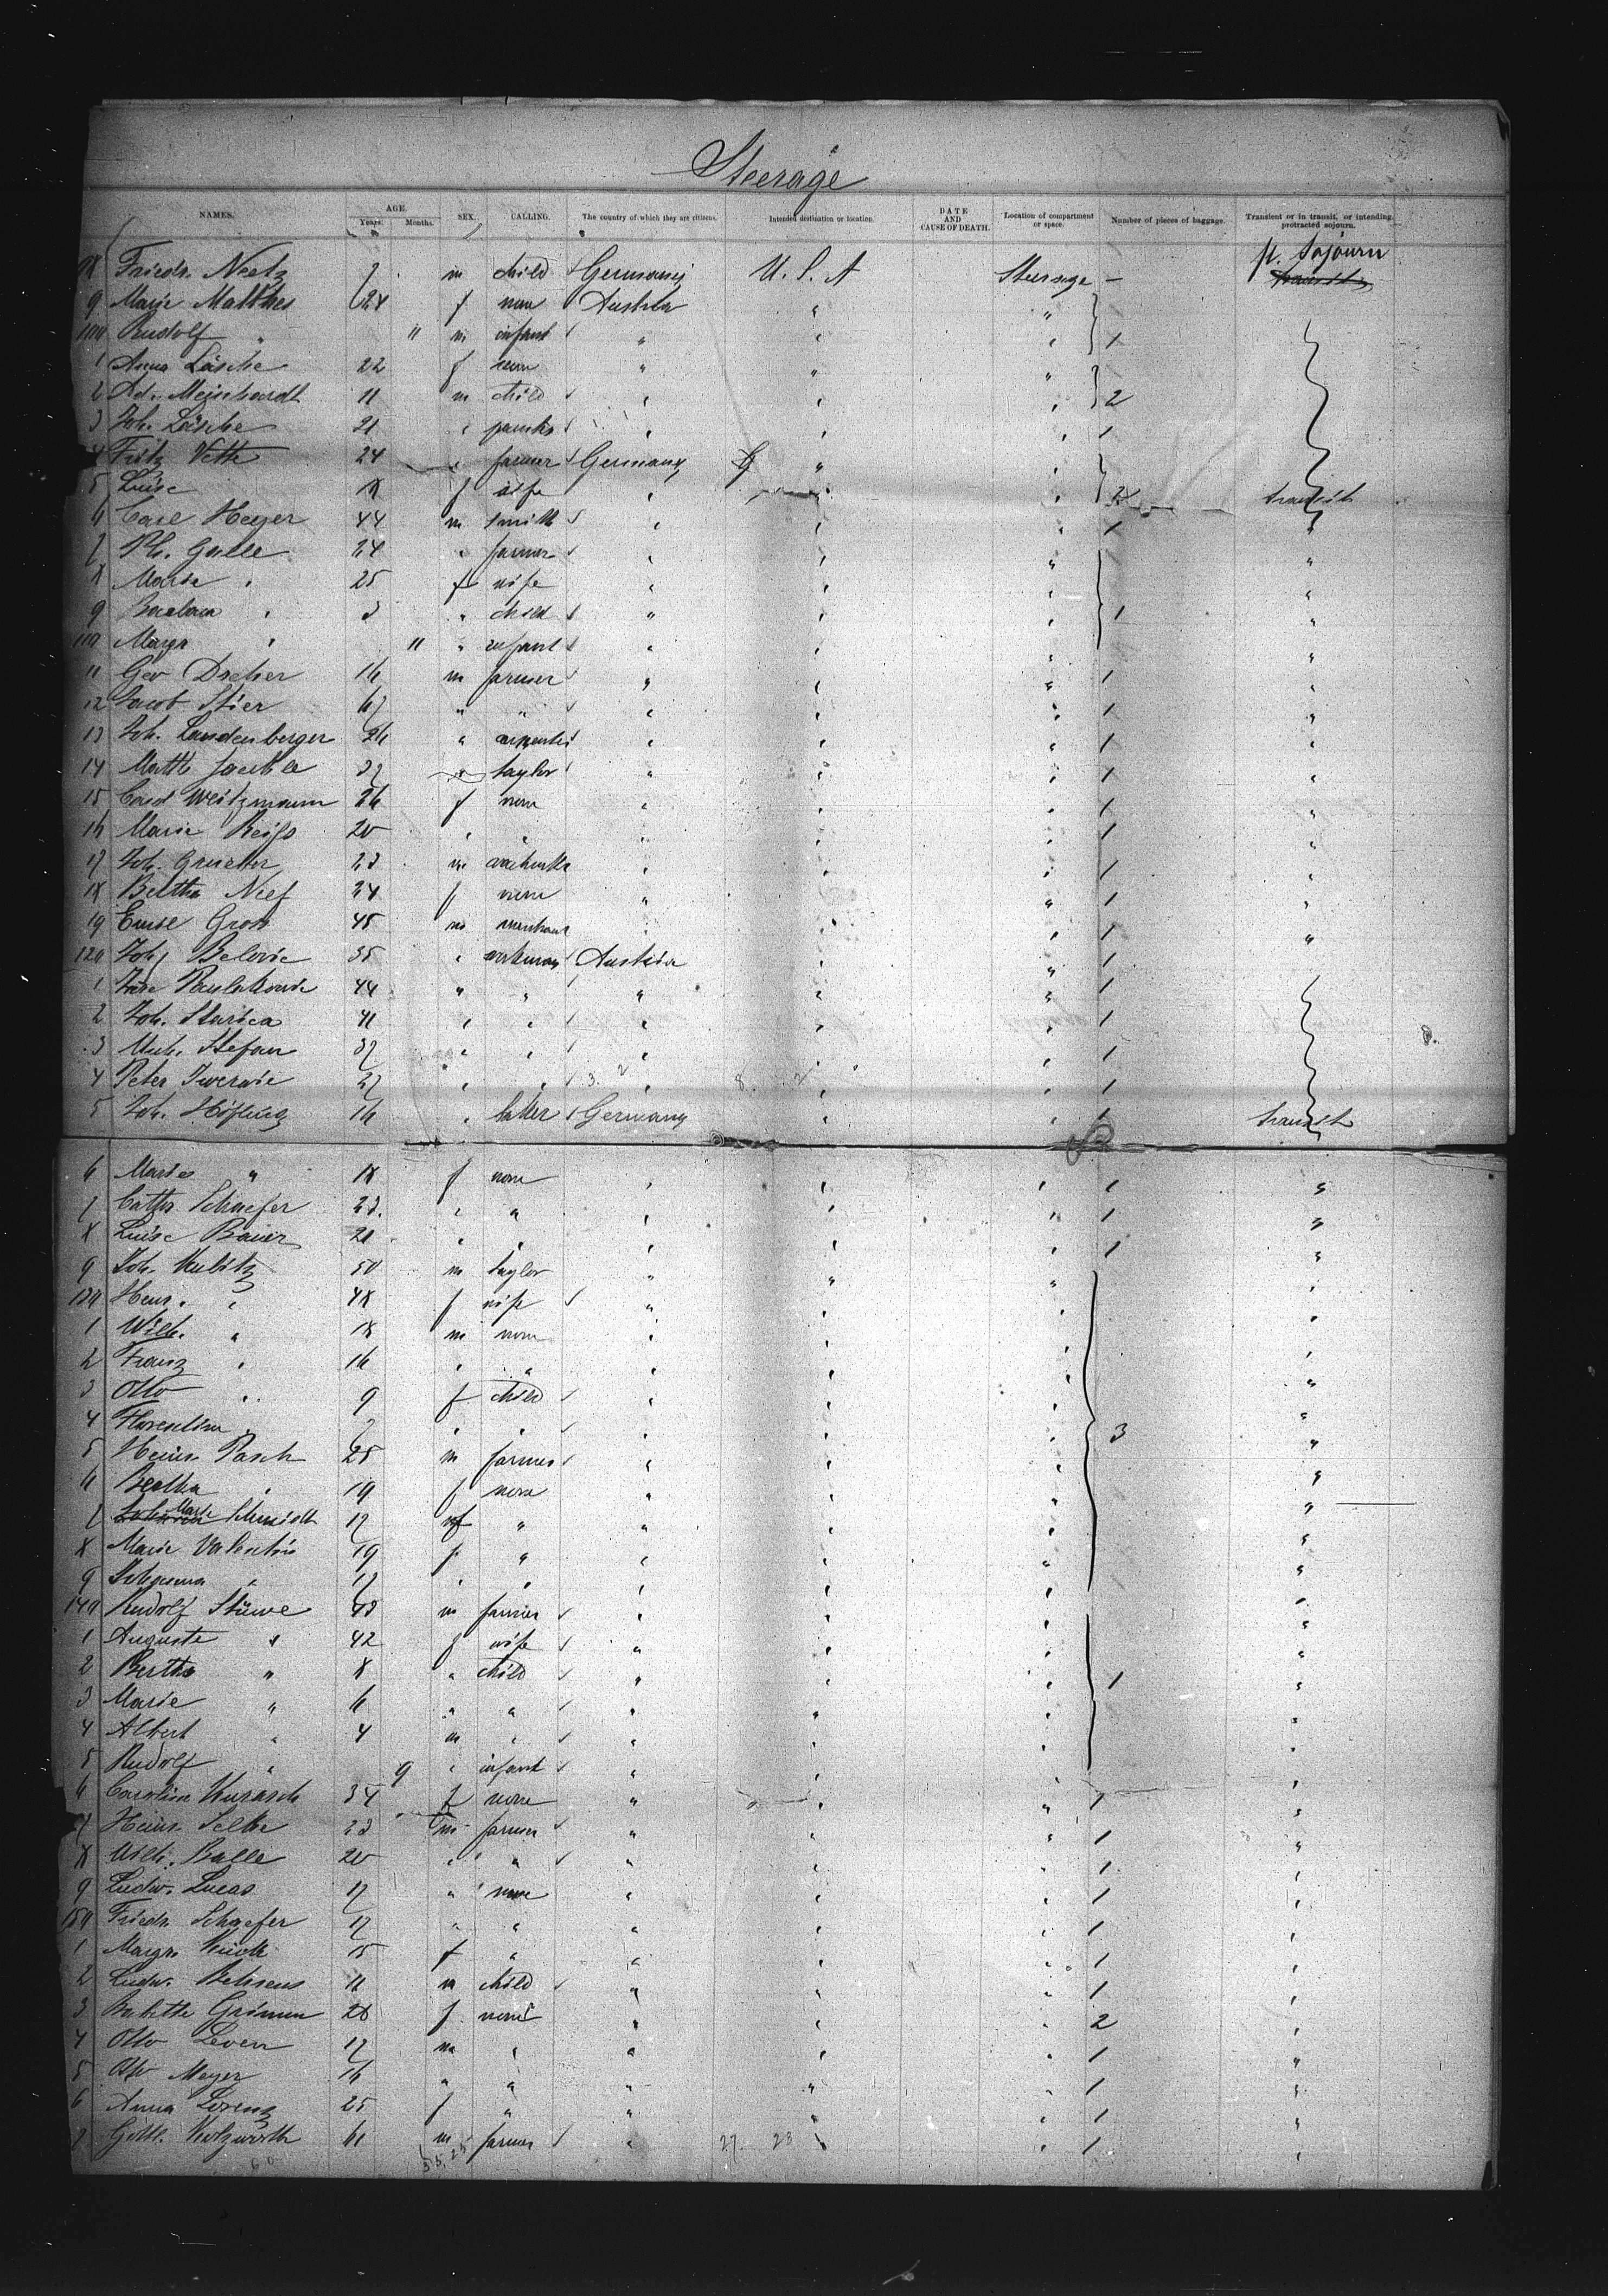 Steerage
NAMES. AGE. Years. Months. SEX. CALLING. The country of which they are citizens. Intended destination or location. DATE AND CAUSE OF DEATH. Location of compartment or space. Number of pieces of baggage. Transient or in transit, or intending protracted sojourn.
Friedr. Neetz m child Germany U. S. A Steerage – p. Sojourn
9 Marie Matthes 24 f none Austria "
100 Rudolf " 11 m infant " " 1
1 AnnaLäsche 22 f none " " "
2 Ad. Meinhardt 11 m child " " " 2
3 Joh. Läsche 21 " " " " 1
4 Fritz Vette 24 " farmer Germany " "
5 Luise 18 f wife " " " 2 transit
6 Carl Heyer 44 m smith " " " 1 "
7 Ph. Galle 24 " farmer " " " "
8 Marie " 25 f wife " " " "
9 Barbara " 3 " child " " " 1 "
110 Margr " 11 " infant " " " "
11 Geo Dreher 16 m farmer " " " 1 "
12 Jacob Stier 67 " " " " " 1 "
13 Joh. Landenberger 26 " carpenter " " " 1 "
14 Matth 37 " taylor " " " 1 "
15 Carol Weitzmann 26 f none " " " 1 "
16 Marie Reiss 20 " " " " " 1 "
17 Joh. 23 m " " " 1 "
18 Bertha Neef 24 f none " " " 1 "
19 Emil Gross 45 m merchant " " " 1 "
120 Joh Belovic 35 " workman Austria " " 1
1 44 " " " " " 1
2 Joh. Starica 41 " " " " " 1
3 Mich. Stefan 37 " " " " " 1
4 Peter 27 " " " " " 1
5 Joh. Höfling 16 " Germany " " 1 transit
6 Marie " 18 f none " " " 1 "
7 Cath Schaefer 23 " " " " " 1 "
8 Luise Bauer 21 " " " " " 1 "
9 Joh. Kulitz 50 m taylor " " " "
130 Henr. " 48 f wife " " " "
1 Wilh. " 18 m none " " " "
2 Franz " 16 " " " " " "
3 Otto " 9 f child " " " "
4 Florentine " 7 " " " " " 3 "
5 Heinr. Pasch 25 m farmer " " " "
6 Bertha " 19 f none " " " "
7 Marie Schmidt 17 f " " " " "
8 Marie Valentin 19 f " " " " "
9 Johanna " 17 " " " " " "
140 Rudolf Stüwe 43 m farmer " " " "
1 Auguste " 42 f wife " " " "
2 Bertha " 8 " child " " " 1 "
3 Marie " 6 " " " " " "
4 Albert " 4 m " " " " "
5 Rudolf " 9 " infant " " " "
6 Caroline 34 f none " " " 1 "
7 Heinr. Selke 23 m farmer " " " 1 "
8 Wilh. Balle 20 " " " " " 1 "
9 Ludw. Lucas 17 " none " " " 1 "
150 Friedr. Schaefer 17 " " " " " 1 "
1 Margr. 15 f " " " " 1 "
2 Ludw. Behrens 11 m child " " " 1 "
3 Babette Grimm 28 f none " " " 2 "
4 Otto Leven 17 m " " " " 1 "
5 Otto Meyer 16 " " " " " 1 "
6 Anna Lorenz 25 f " " " " 1 "
7 Gottl. 61 m farmer " " " 1 "
27. 23